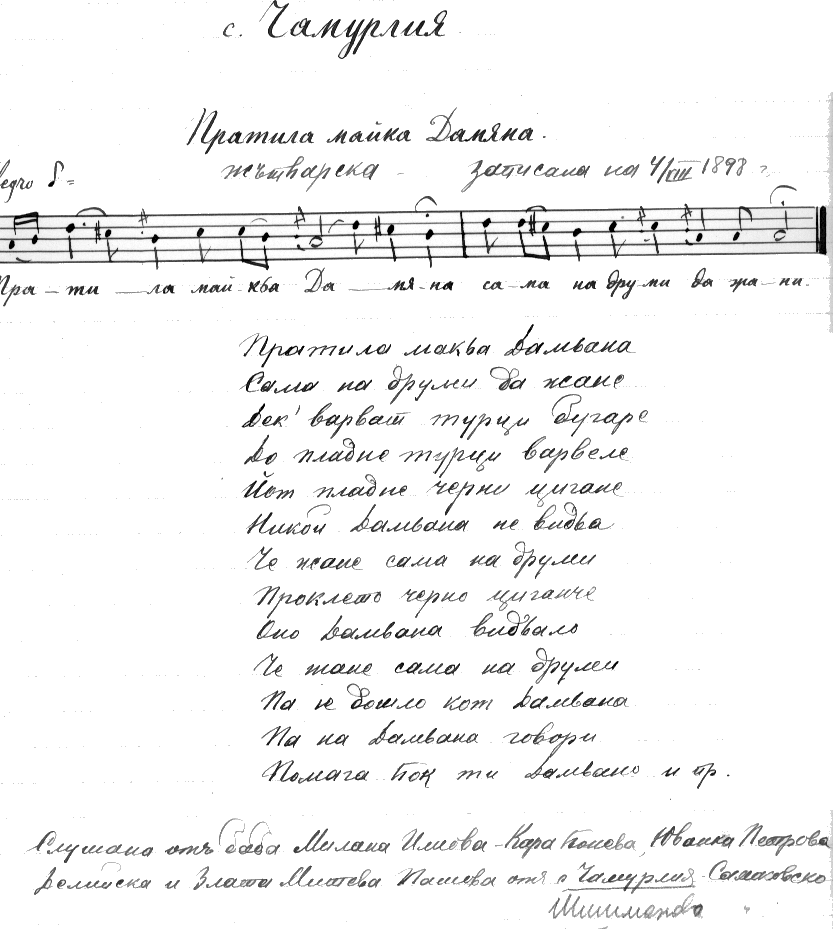 с. Чамурлия
Пратила майка Дамяна.
жътварска - записала на 4/VIII 1898 г.
Пра-ти-ла май-кьа Да-мя-на са-ма на дру-ми да жа-ни.
Пратила макьа Дамьана
Сама на друми да жане
Дек' варват турци бугаре
До пладне турци варвеле
Йот пладне черни цигане
Никой Дамьана не видьа
Че жане сама на друми
Проклето черно циганче
Оно Дамьана видьало
Че жане сама на друми
Па не дошло кот Дамьана
Па на Дамьана говори
Помага Бок ти Дамьано и пр.
Слушана отъ баба Милана Кара Бонева, Юванка Петрова
Делийска и Злата Митева Пашова отъ с Чамурлия - Самоковско
Шишманово "